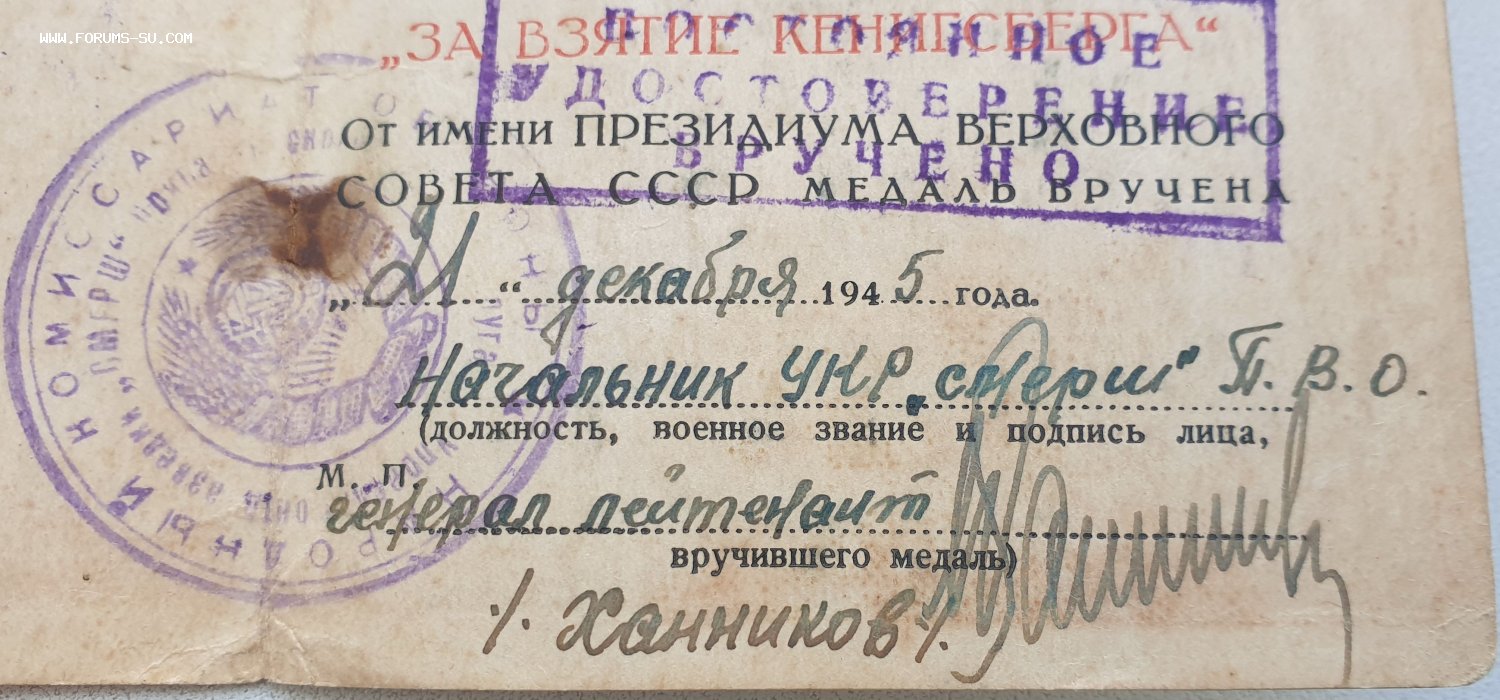 www.forums-su.com
„ЗА ВЗЯТИЕ КЕНИГСБЕРГА“
ПОСТОЯННОЕ
УДОСТОВЕРЕНИЕ
ВРУЧЕНО
От имени ПРЕЗИДИУМА ВЕРХОВНОГО
СОВЕТА СССР МЕДАЛЬ ВРУЧЕНА
„21“ декабря 1945 года.
Начальник УКР „Смерш“ П.В.О.
(должность, военное звание и подпись лица,
М. П.
генерал лейтенант
вручившего медаль)
/. Ханников ./.
НАРОДНЫЙ КОМИССАРИАТ ОБОРОНЫ